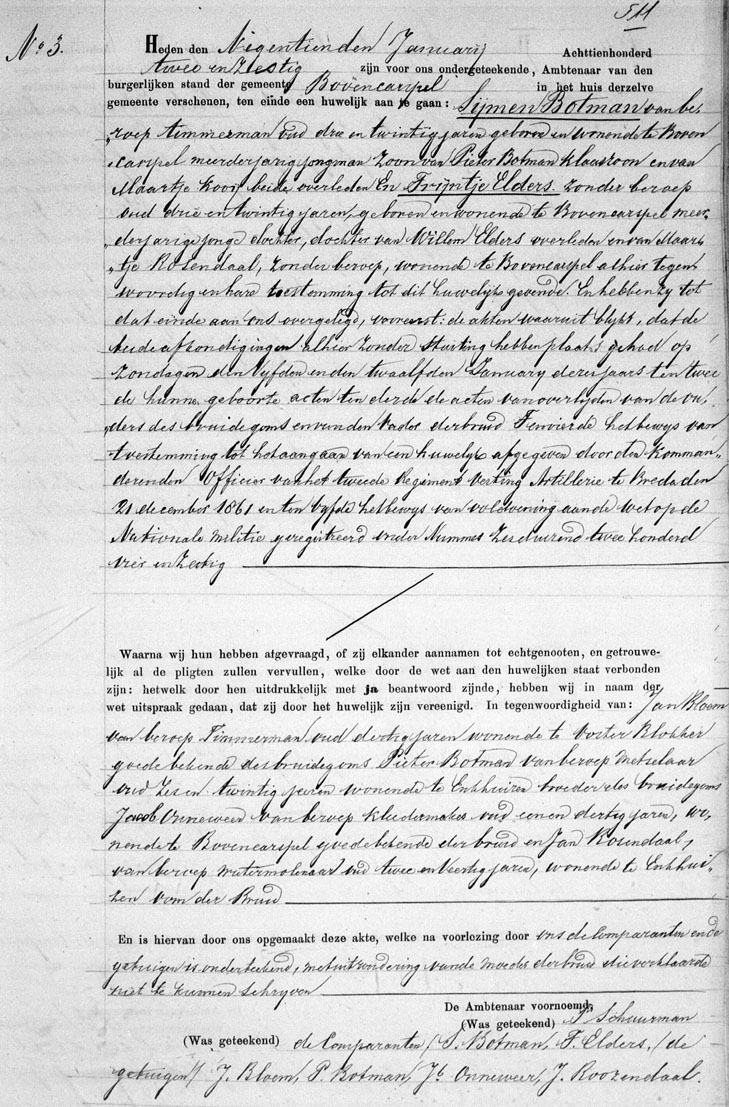 511
No 3.
Heden den Negentienden January Achttienhonderd
twee en Zestig zijn voor ons ondergeteekende, Ambtenaar van den
burgerlijken stand der gemeente Bovencarspel in het huis derzelve
gemeente verschenen, ten einde een huwelijk aan te gaan: Sijmen Botman van be„
„roep timmerman oud drie en twintig jaren geboren en wonende te Boven
carspel meerderjarig jongman zoon van Pieter Botman Klaaszoon en van
Maartje Kooij beide overleden En Trijntje Elders. Zonder beroep
oud drie en twintig jaren, geboren en wonende te Bovencarspel meer„
„derjarige jonge dochter, dochter van Willem Elders overleden en van Maar„
„tje Rosendaal, zonder beroep, wonende te Bovencarspel alhier tegen
woordig en hare toestemming tot dit huwelijk gevende. En hebben zy tot
dat einde aan ons overgelegd, vooreerst: de akten waaruit blykt, dat de
beide afkondigingen alhier zonder stuiting hebben plaats gehad op
Zondagen den vyfden en den twaalfden January dezes jaars ten twee
de hunne geboorte acten ten derde de acten van overlyden van de ou„
„ders des bruidegoms en van den Vader der bruid Ten vierde het bewys van
toestemming tot het aangaan van een huwelyk afgegeven door den komman„
derenden Officier van het tweede Regiment Vesting Artillerie te Breda den
21 december 1861 en ten vyfde het bewys van voldoening aan de wet op de
Nationale militie geregistreerd onder Nummer Zesduizend twee honderd
vier en Zestig
Waarna wij hun hebben afgevraagd, of zij elkander aannamen tot echtgenooten, en getrouwe-
lijk al de pligten zullen vervullen, welke door de wet aan den huwelijken staat verbonden
zijn: hetwelk door hen uitdrukkelijk met ja beantwoord zijnde, hebben wij in naam der
wet uitspraak gedaan, dat zij door het huwelijk zijn vereenigd. In tegenwoordigheid van: Jan Bloem
van beroep Timmerman oud dertig jaren wonende te Ooster Blokker
goede bekende des bruidegoms Pieter Botman van beroep Metselaar
oud Zes en twintig jaren wonende te Enkhuizen broeder des bruidegoms
Jacob Onneweer van beroep Kledermaker oud een en dertig jaren, wo„
nende te Bovencarspel goede bekende der bruid en Jan Rosendaal,
van beroep watermolenaar oud twee en Veertig jaren, wonende te Enkhui„
zen oom der Bruid
En is hiervan door ons opgemaakt deze akte, welke na voorlezing door ons de Comparanten en de
getuigen is onderteekend, met uitzondering van de moeder der bruid die verklaarde
niet te kunnen schryven
De Ambtenaar voornoemd,
(Was geteekend) P. Schuurman
(Was geteekend) de Comparanten / S. Botman, T. Elders, / de
getuigen // J. Bloem, P. Botman, Jb Onneweer, J. Roozendaal.